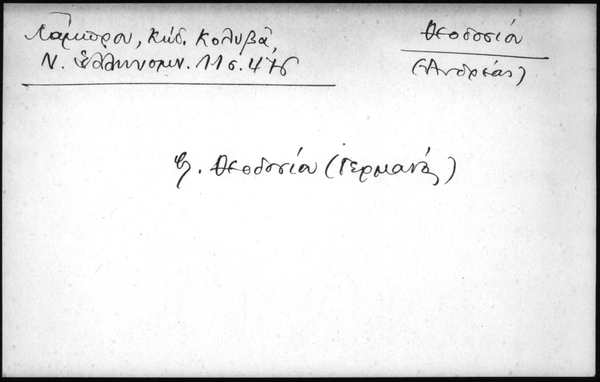 Λάμπρου, Κώδ. Κολυβᾶ,
Ν. Ἑλληνομν. 11 σ. 476
Θεοδοσίου
(Ἀνδρέας)
βλ. Θεοδοσίου (Γερμανός)